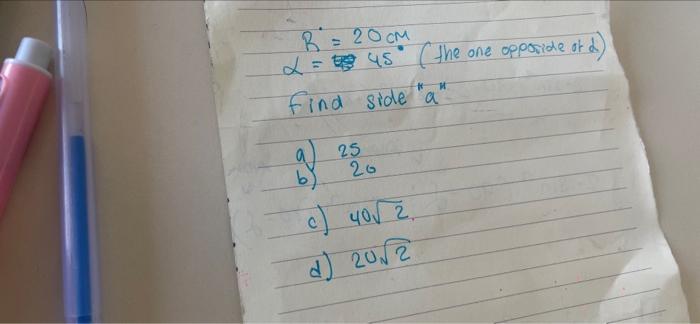 R = 20 cm
α = 45° (the one opposide of α)
Find side "a"
a) 25
b) 20
c) 40√2
d) 20√2